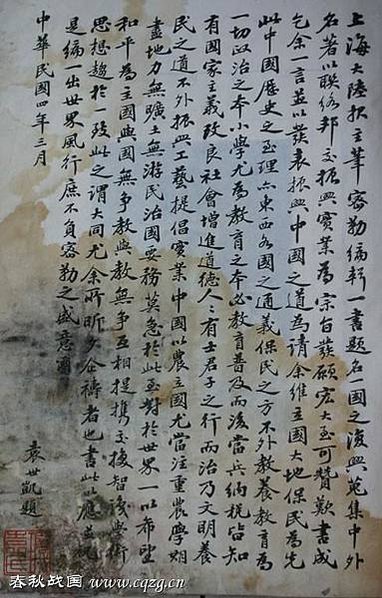 上海大陸報主筆密勒編輯一書題名一國之復興蒐集中外
名著以聯絡邦交振興實業為宗旨發願宏大至可贊歎書成
乞余一言並以發表振興中國之道為請余維立國大地保民為先
此中國歷史之至理六東西各國之通義保民之方不外教養教育為
一切政治之本小學尤為教育之本必教育普及而後當兵納稅皆知
有國家主義改良社會增進道德人人有士君子之行而治乃文明養
民之道不外振興工藝提倡實業中國以農立國尤當注重農學期
盡地力無曠土無游民治國要務莫急於此至對於世界一以希望
和平為主國與國無爭教與教無爭互相提携交換智識學術
思想趨於一致此之謂大同尤余所昕夕企禱者也書此以應並祝
是編一出世界風行庶不負密勒之盛意爾
中華民國四年三月
袁世凱題
春秋战国 www.cqzg.cn